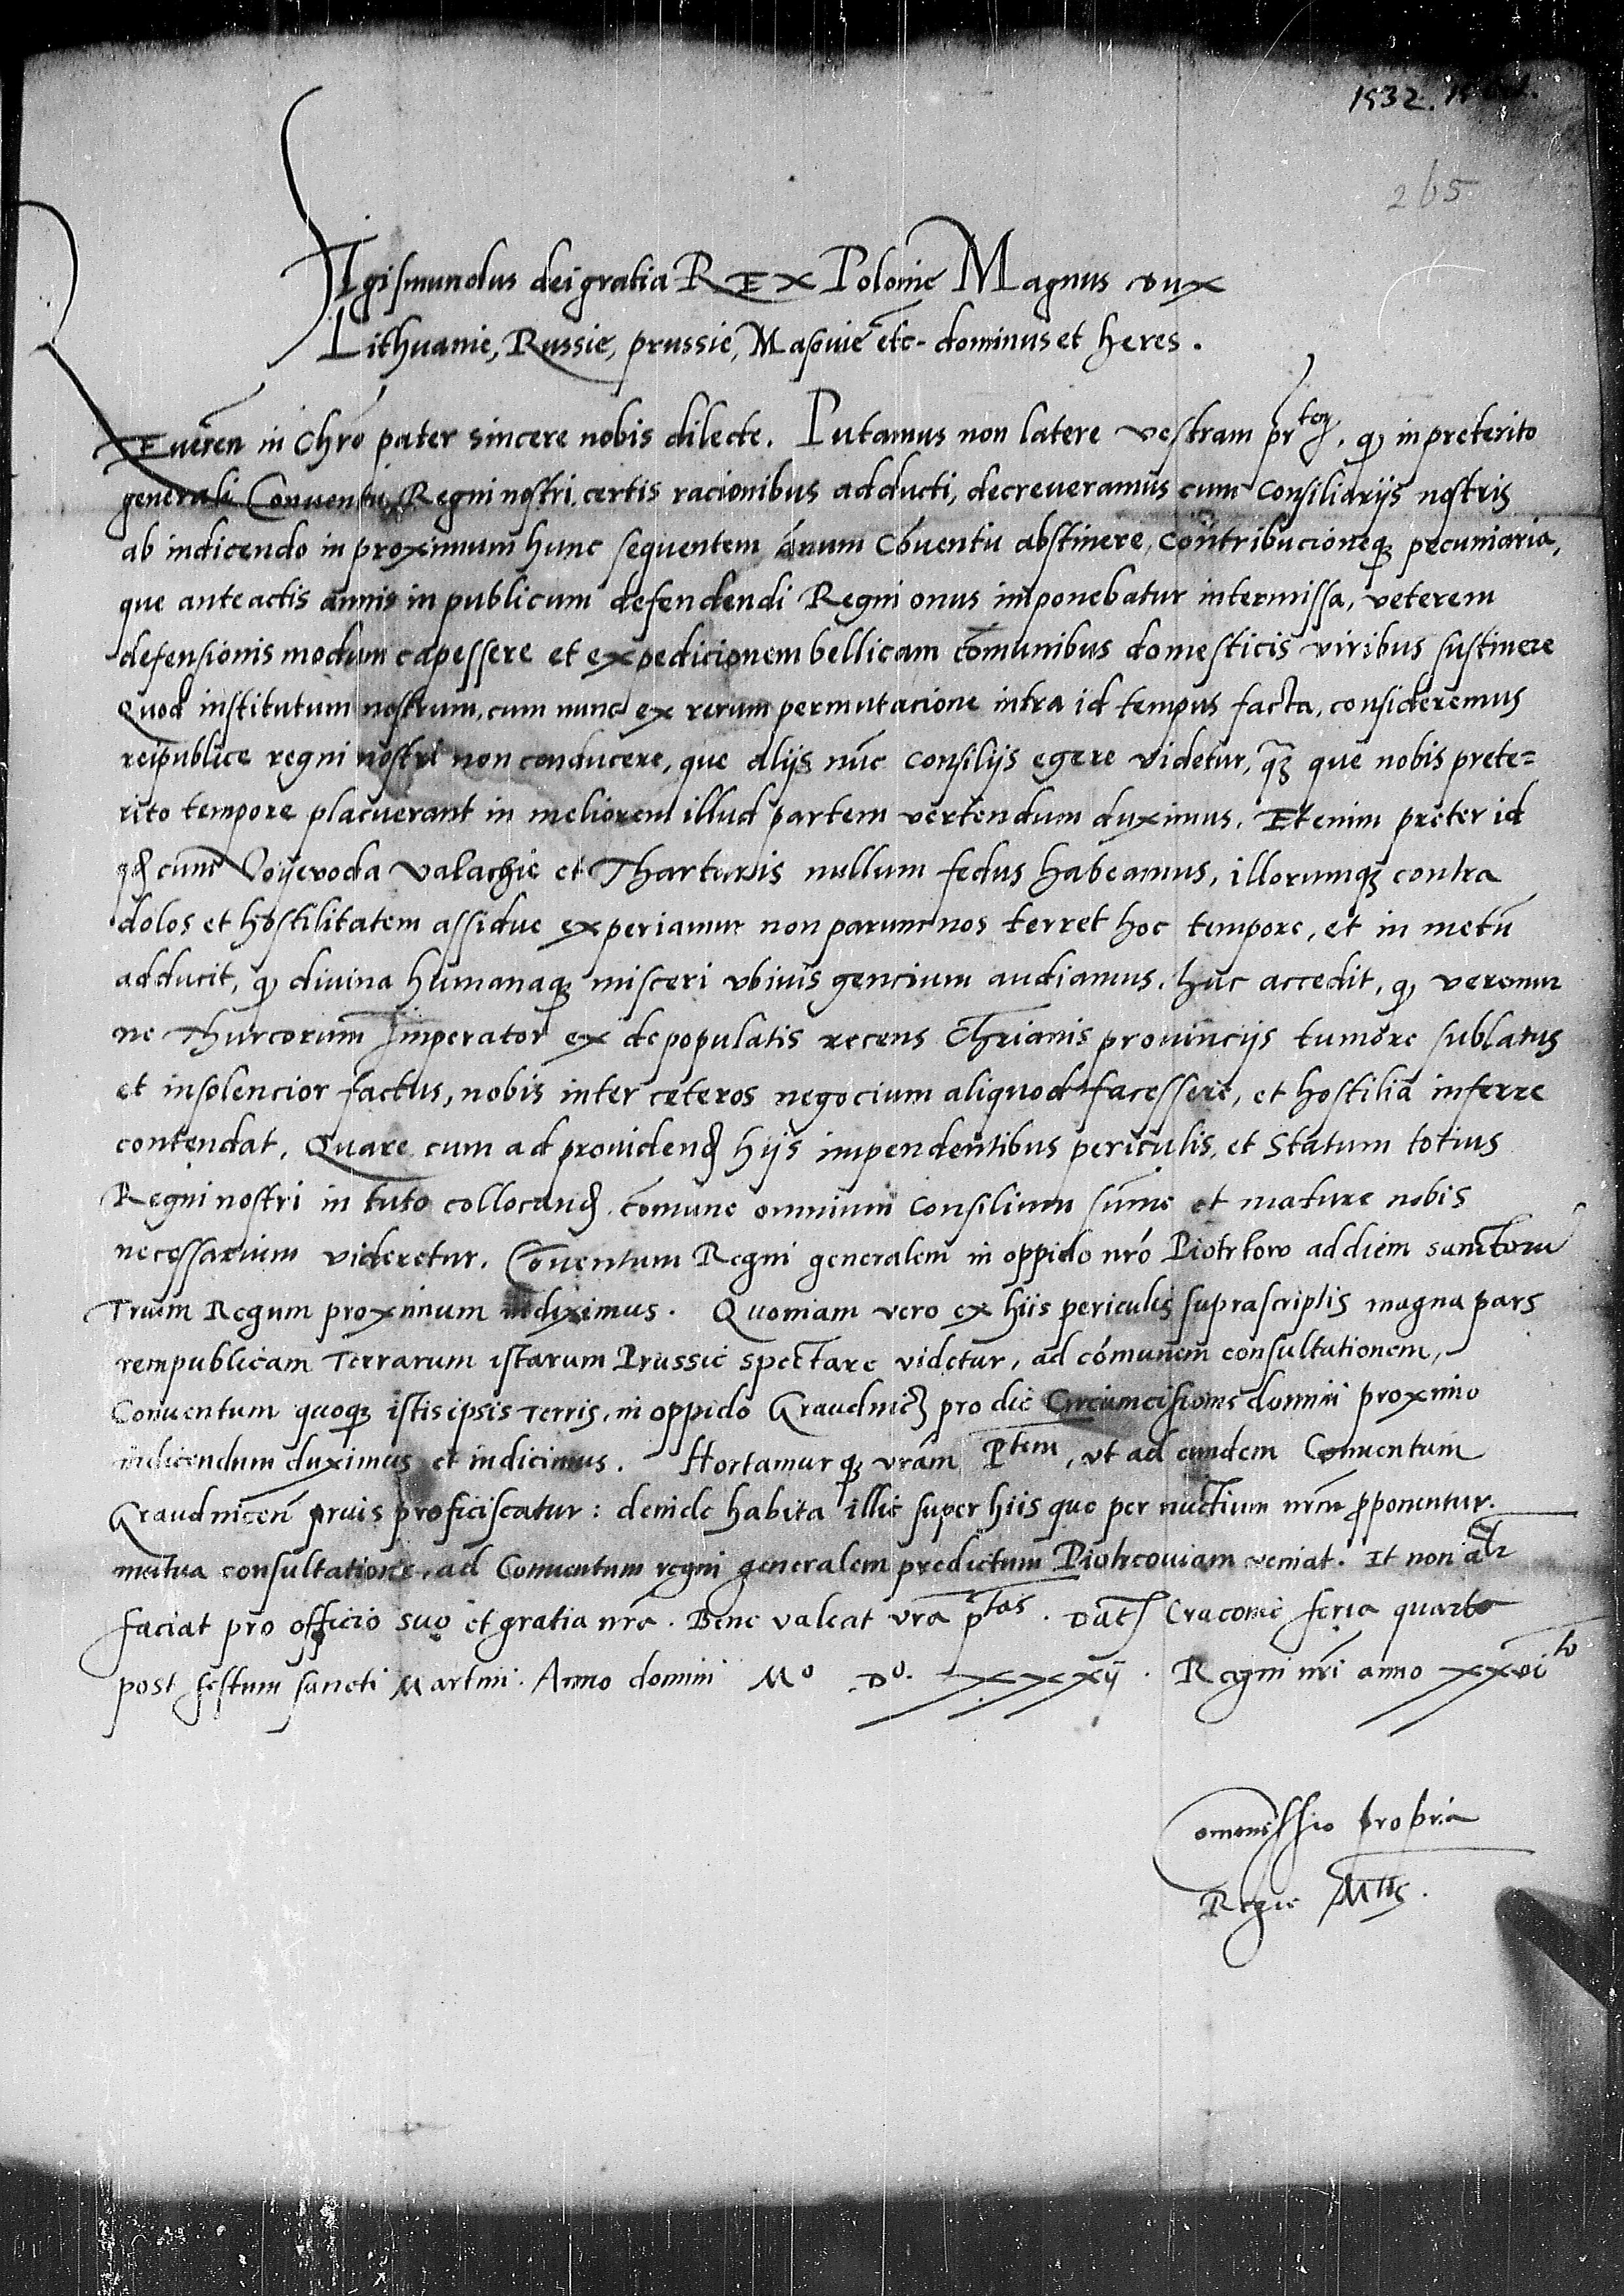 1532.
265
SIgismundus dei gratia REX Polonie Magnus dux
Lithuanie, Russie, prussie, Masovie etc- dominus et heres.
REveren in Chro pater sincere nobis dilecte. Putamus non latere vestram prtem, q in preterito
generali Conventu Regni nostri certis racionibus adducti, decreveramus cum Consiliarijs nostris
ab indicendo in proximum hunc sequentem anum Coventu abstinere, contribucioneq pecuniaria,
que anteactis annis in publicum defendendi Regni onus imponebatur intermissa, veterem
defensionis modum capessere et expedicionem bellicam comunibus domesticis viribus sustinere
Quod institutum nostrum, cum nunc ex rerum permutacione intra id tempus facta, consideremus
reipublice regni nostri non conducere, que alijs nuc consilijs egere videtur, q que nobis prete=
rito tempore placuerant in meliorem illud partem vertendum duximus. Etenim preter id
qd cum Voyevoda Valachie et Thartaris nullum fedus habeamus, illorumq contra
dolos et hostilitatem assidue experiamur non parum nos terret hoc tempore, et in metu
adducit, q divina humanaq misceri ubivis gencium audiamus. huc accedit, q veremur
ne Thurcorum Imperator ex depopulatis recens Chrianis provincijs tumore sublatus
et insolencior factus, nobis inter ceteros negocium aliquod facessere, et hostilia inferre
contendat. Quare cum ad providend hijs impendentibus periculis, et Statum totius
Regni nostri in tuto collocand comune omnium Consilium sume et mature nobis
necessarium videretur. Coventum Regni generalem in oppido nro Piotrkow ad diem sanctoru
Trium Regum proximum indiximus. Quoniam vero ex hiis periculis suprascriptis magna pars
rempublicam Terrarum istarum Prussie spectare videtur, ad comunem consultationem,
Conventum quoq istis ipsis Terris, in oppido Graudnicz pro die Circumcisionis domini proximo
indicendum duximus et indicimus. Hortamurq vram Ptem, ut ad eundem Conventum
Graudnicen prius proficiscatur: deinde habita illic super hiis que per nuctium nrm proponentur.
mutua consultatione, ad Conventum regni generalem predictum Piotrcoviam veniat. Et non alr
faciat pro officio suo et gratia nra. Bene valeat vra ptas. Dat Cracovie feria quarta
post festum sancti Martini. Anno domini Mo Do. xxxij. Regni nri anno xxvito
Commissio propria
Regie Mtis.